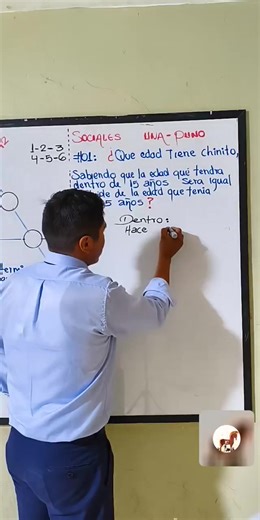 1-2-3
4-5-6
SOCIALES UNA-PUNO
#01: ¿Que edad Tiene chinito,
Sabiendo que la edad que tendra
dentro de 15 años Sera igual
de de la edad que tenia
5 años?
① Dentro:
Hace